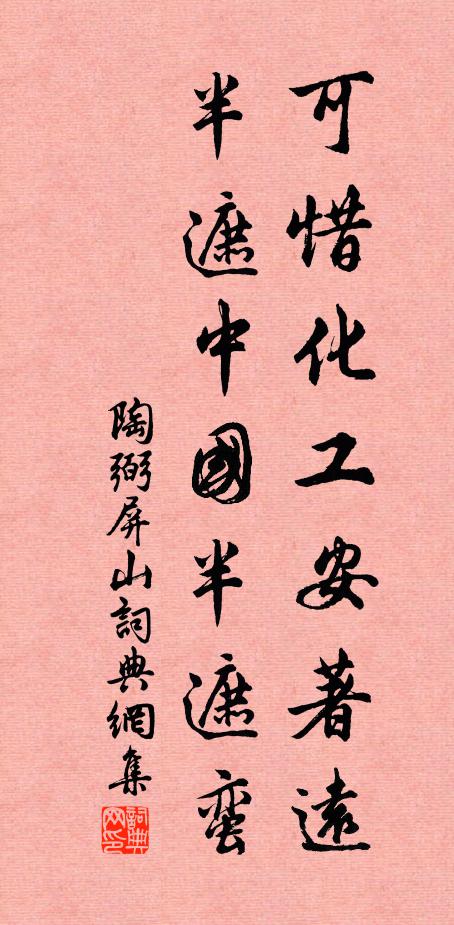 可惜化工安著遠
半遮中國半遮蛮
陶弼屏山詞典網集
詞典網印